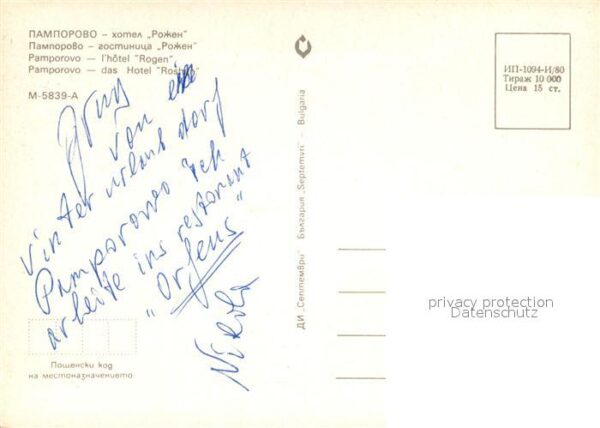 ПАМПОРОВО – хотел „Рожен"
Пампорово – гостиница „Рожен"
Pamporovo — l'hôtel "Rogen"
Pamporovo — das Hotel
М-5839-А
ИП-1094-И/80
Тираж 10 000
Цена 15 ст.
von
Vinter urlaub dorf
Pamporovo Ich
arbeite ins restorant
"Orfeus"
Nikola
ДИ „Септември" България „Septemvri" - Bulgaria
privacy protection
Datenschutz
Пощенски код
на местоназначението